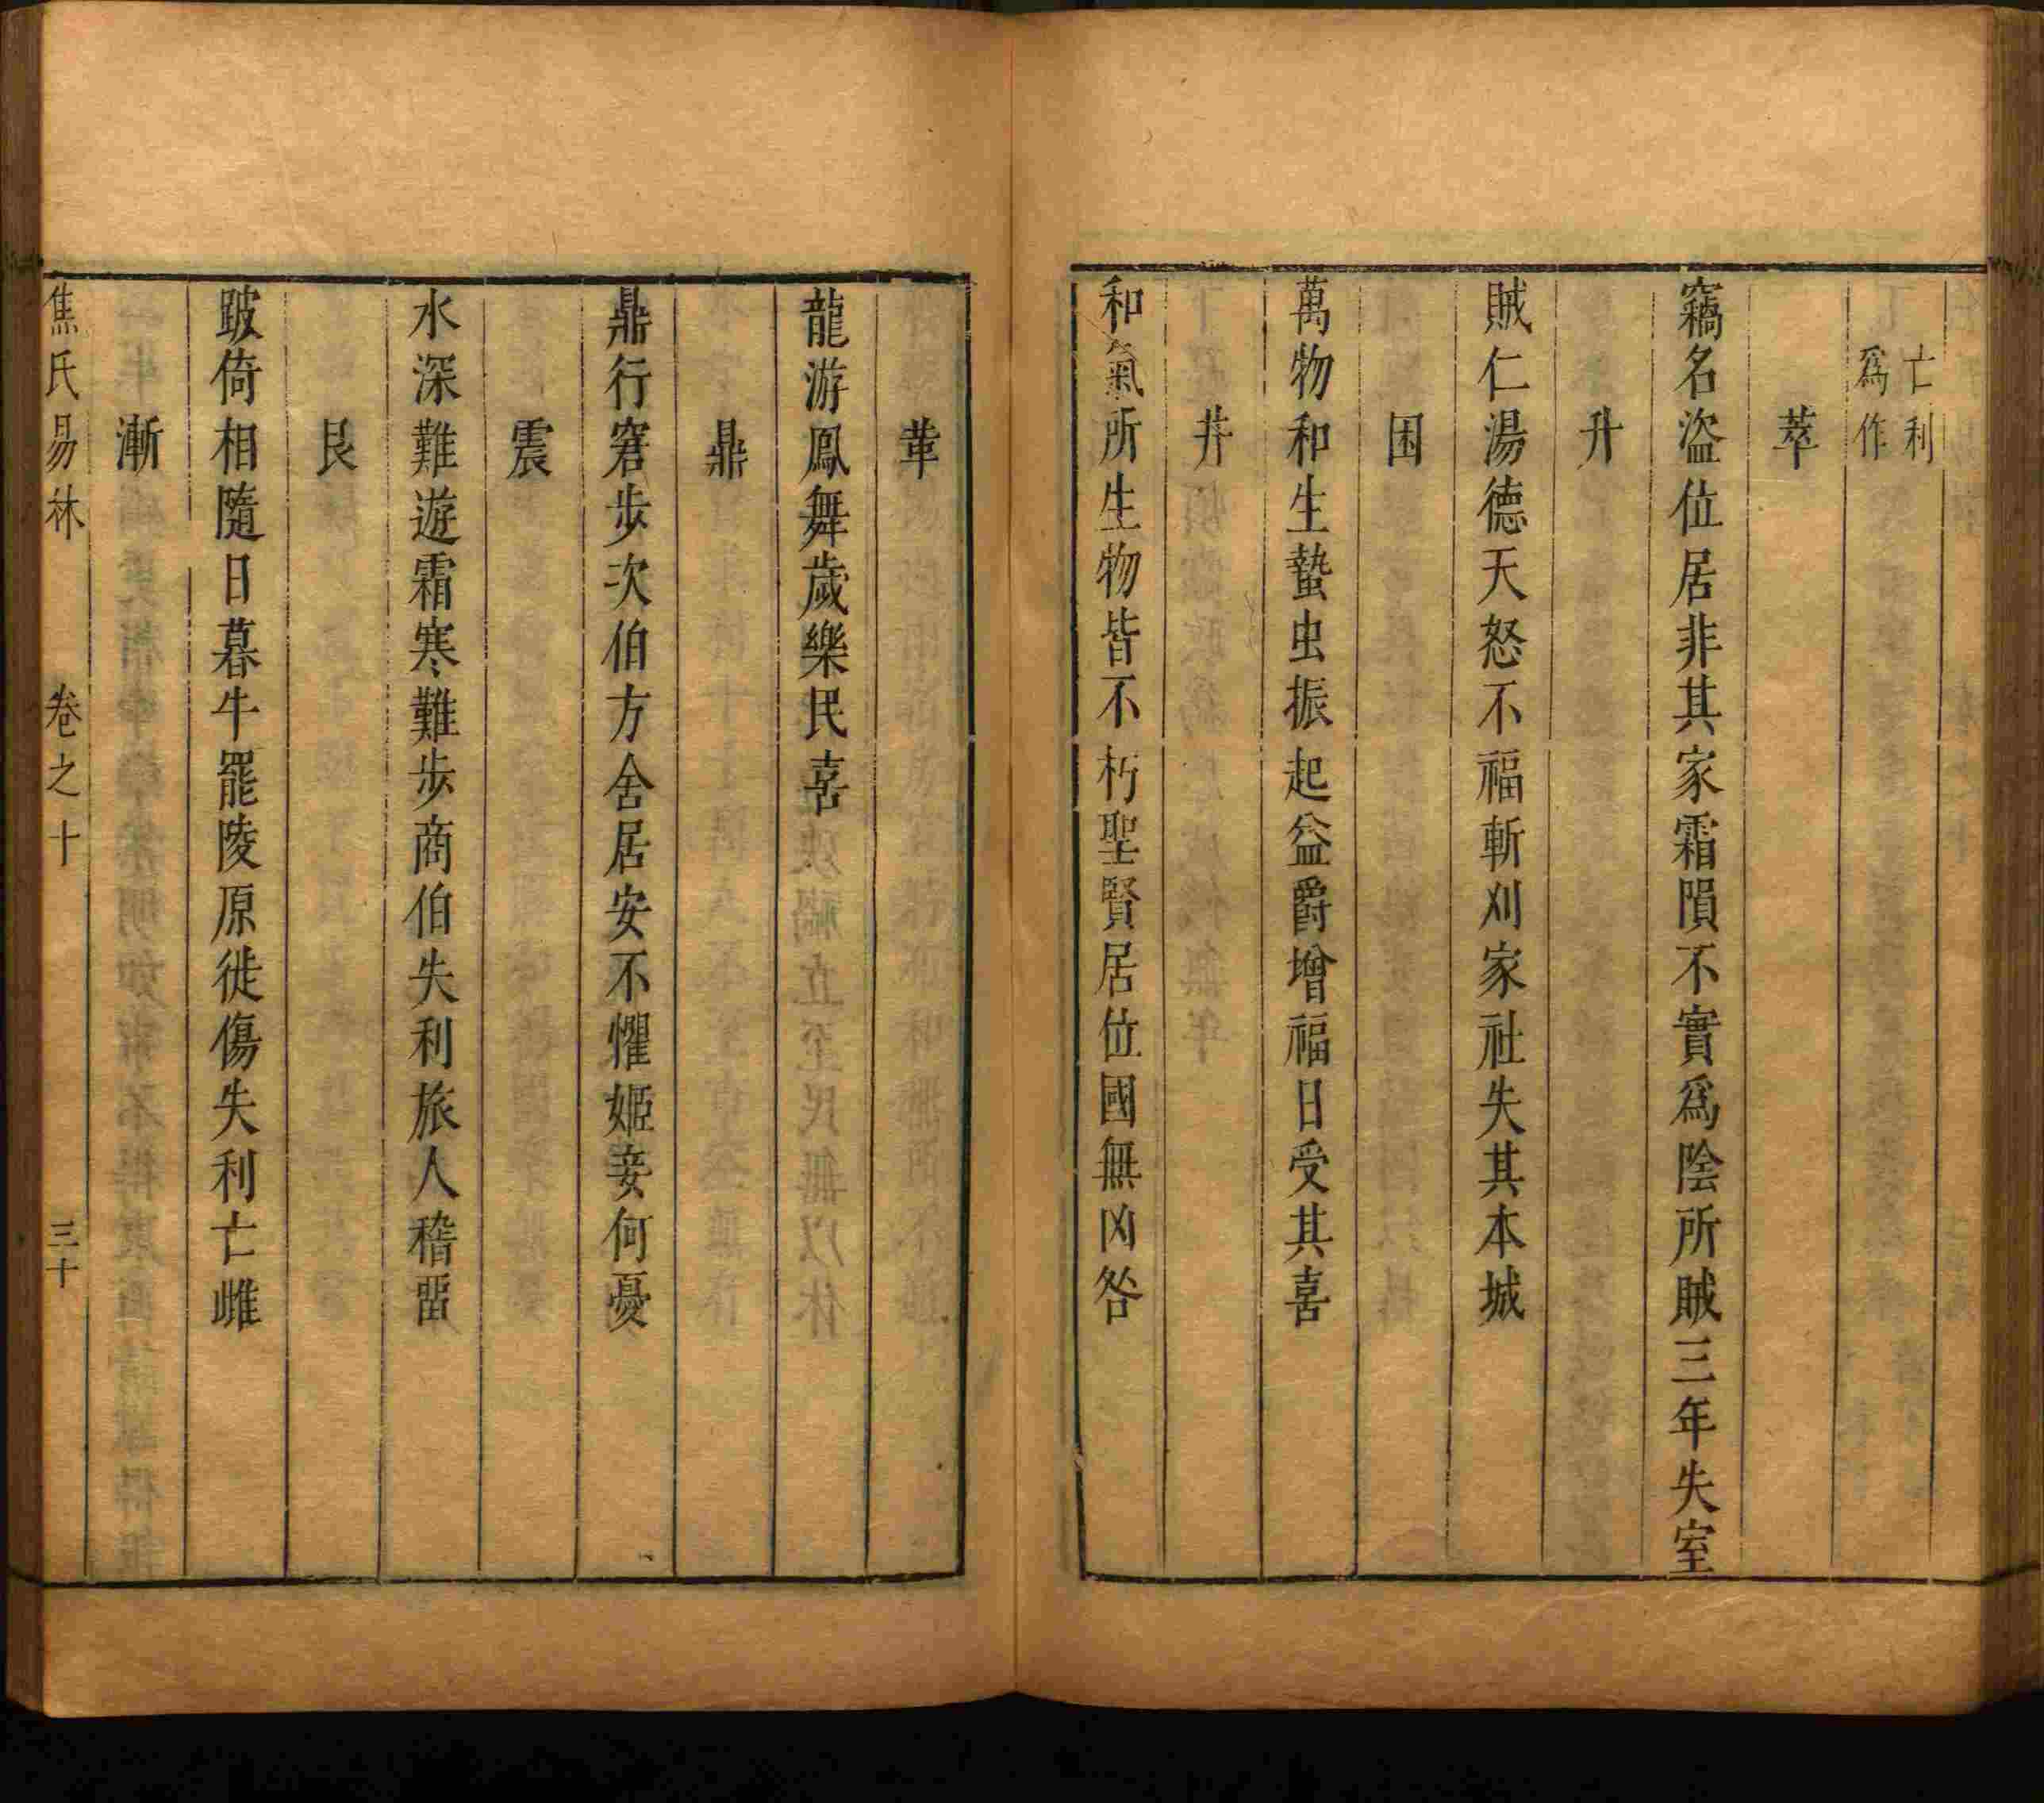 亡利
爲作
萃
竊名盜位居非其家霜隕不實爲陰所賊三年失室
升
賊仁湯德天怒不福斬刈家社失其本城
困
萬物和生蟄虫振起益爵增福日受其喜
井
和氣所生物皆不朽聖賢居位國無凶咎
革
龍游鳳舞歲樂民喜
鼎
鼎行窘步次伯方舍居安不懼姬妾何憂
震
水深難遊霜寒難步商伯失利旅人稽畱
艮
跛倚相隨日暮牛罷陵原徙傷失利亡雌
漸
焦氏易林 卷之十 三十